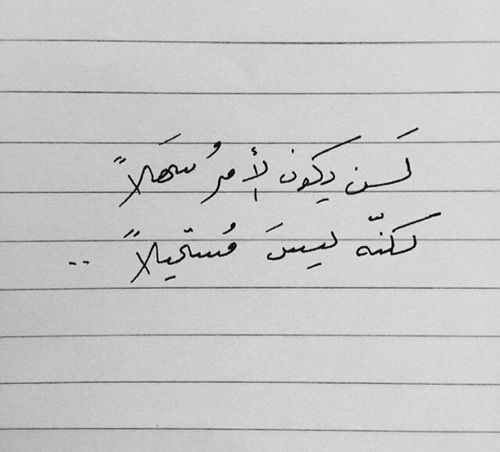 لَن يكون الأمرُ سَهلاً
لكنّه ليسَ مُستحيلاً ..